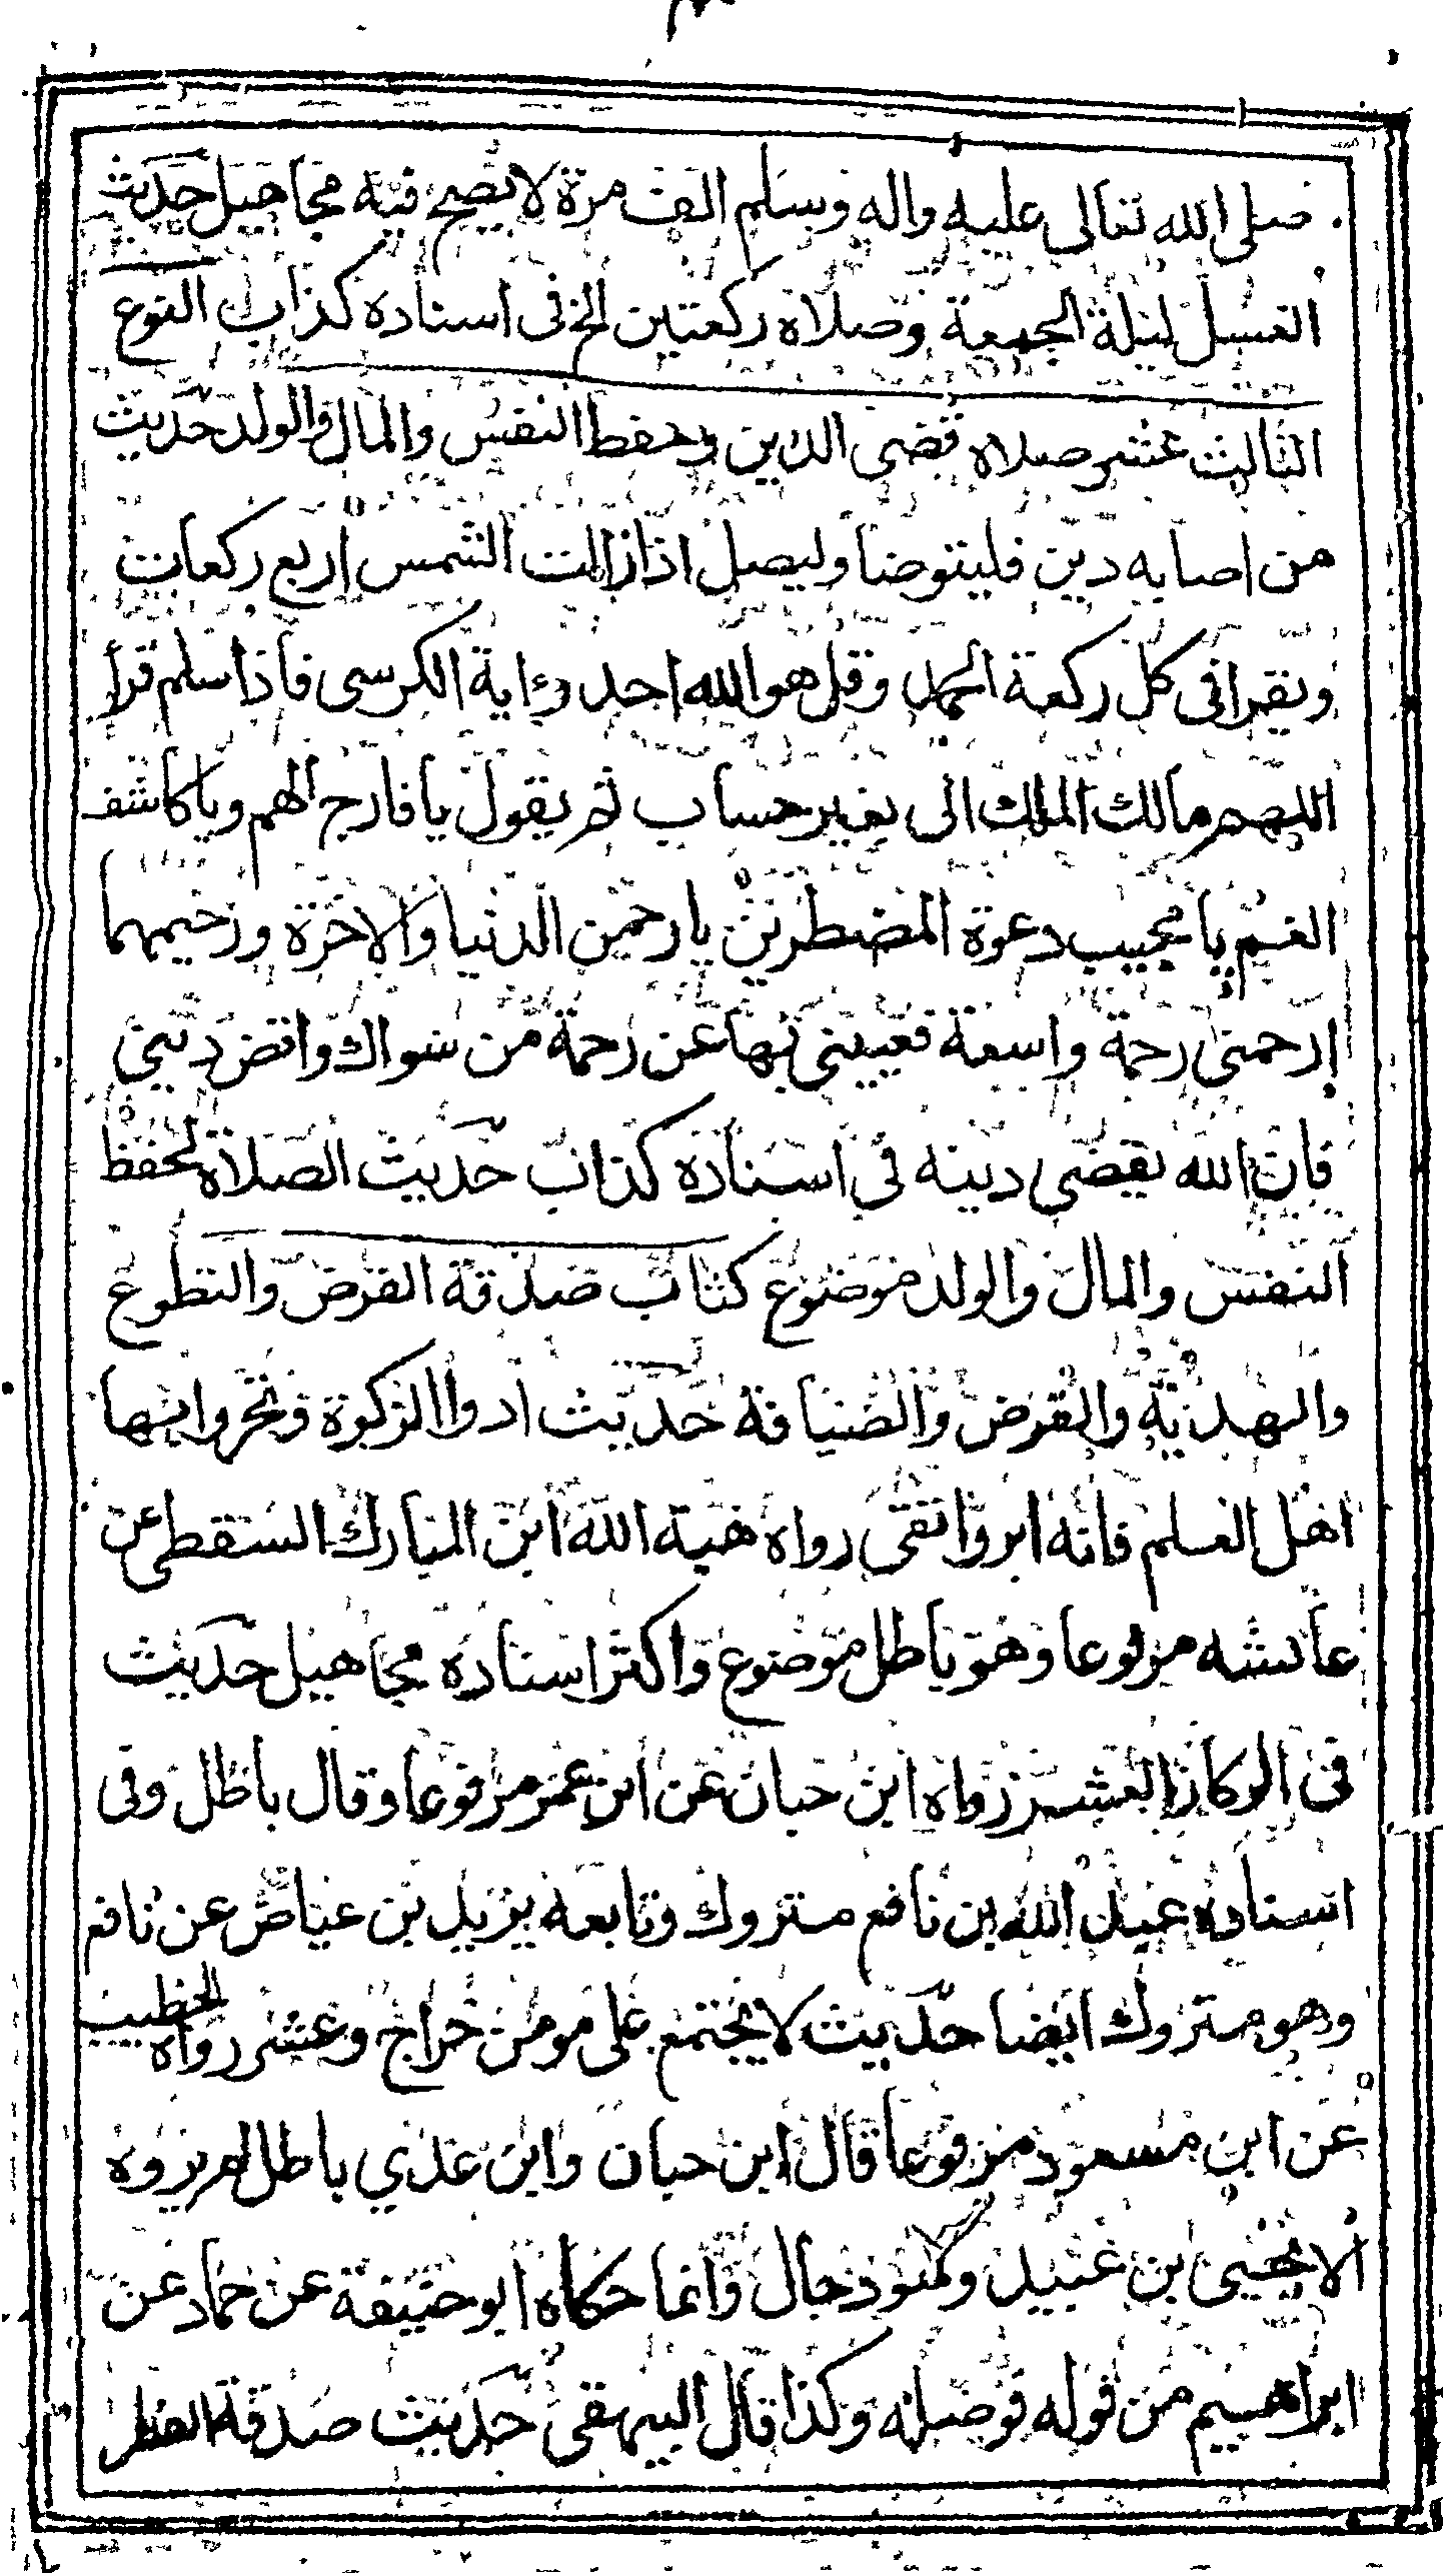 صلى الله تعالى عليه واله وسلم الف مرة لا يصح فيه مجاهيل حديث
الغسل ليلة الجمعة وصلاة ركعتين الخ فى اسناده كذاب النوع
الثالث عشر صلاة قضى الدين وحفظ النفس والمال والولد حديث
من اصابه دين فليتوضا وليصل اذا زالت الشمس اربع ركعات
ويقرا فى كل ركعة الحمد وقل هو الله احد واية الكرسى فاذا سلم قرأ
اللهم مالك الملك الى بغير حساب ثم يقول يا فارج الهم ويا كاشف
الغم يا مجيب دعوة المضطرين يا رحمن الدنيا والاخرة ورحيمهما
ارحمنى رحمة واسعة تغنينى بها عن رحمة من سواك واقض دينى
فان الله يقضى دينه فى اسناده كذاب حديث الصلاة لحفظ
النفس والمال والولد موضوع كتاب صدقة الفرض والتطوع
والهدية والقرض والضيافة حديث ادوا الزكوة وتحروا بها
اهل العلم فانه ابر واتقى رواه هبة الله ابن المبارك السقطى عن
عائشه مرفوعا وهو باطل موضوع واكثر اسناده مجاهيل حديث
فى الركاز العشر رواه ابن حبان عن ابن عمر مرفوعا وقال باطل وفى
اسناده عبد الله بن نافع متروك وتابعه يزيد بن عياض عن نافع
وهو متروك ايضا حديث لا يجتمع على مومن خراج وعشر رواه الخطيب
عن ابن مسعود مرفوعا قال ابن حبان وابن عدي باطل لم يروه
الا يحيى بن عنبيد وهو دجال وانما حكاه ابو حنيفة عن حماد عن
ابراهيم من قوله فوصله وكذا قال البيهقى حديث صدقة الفطر